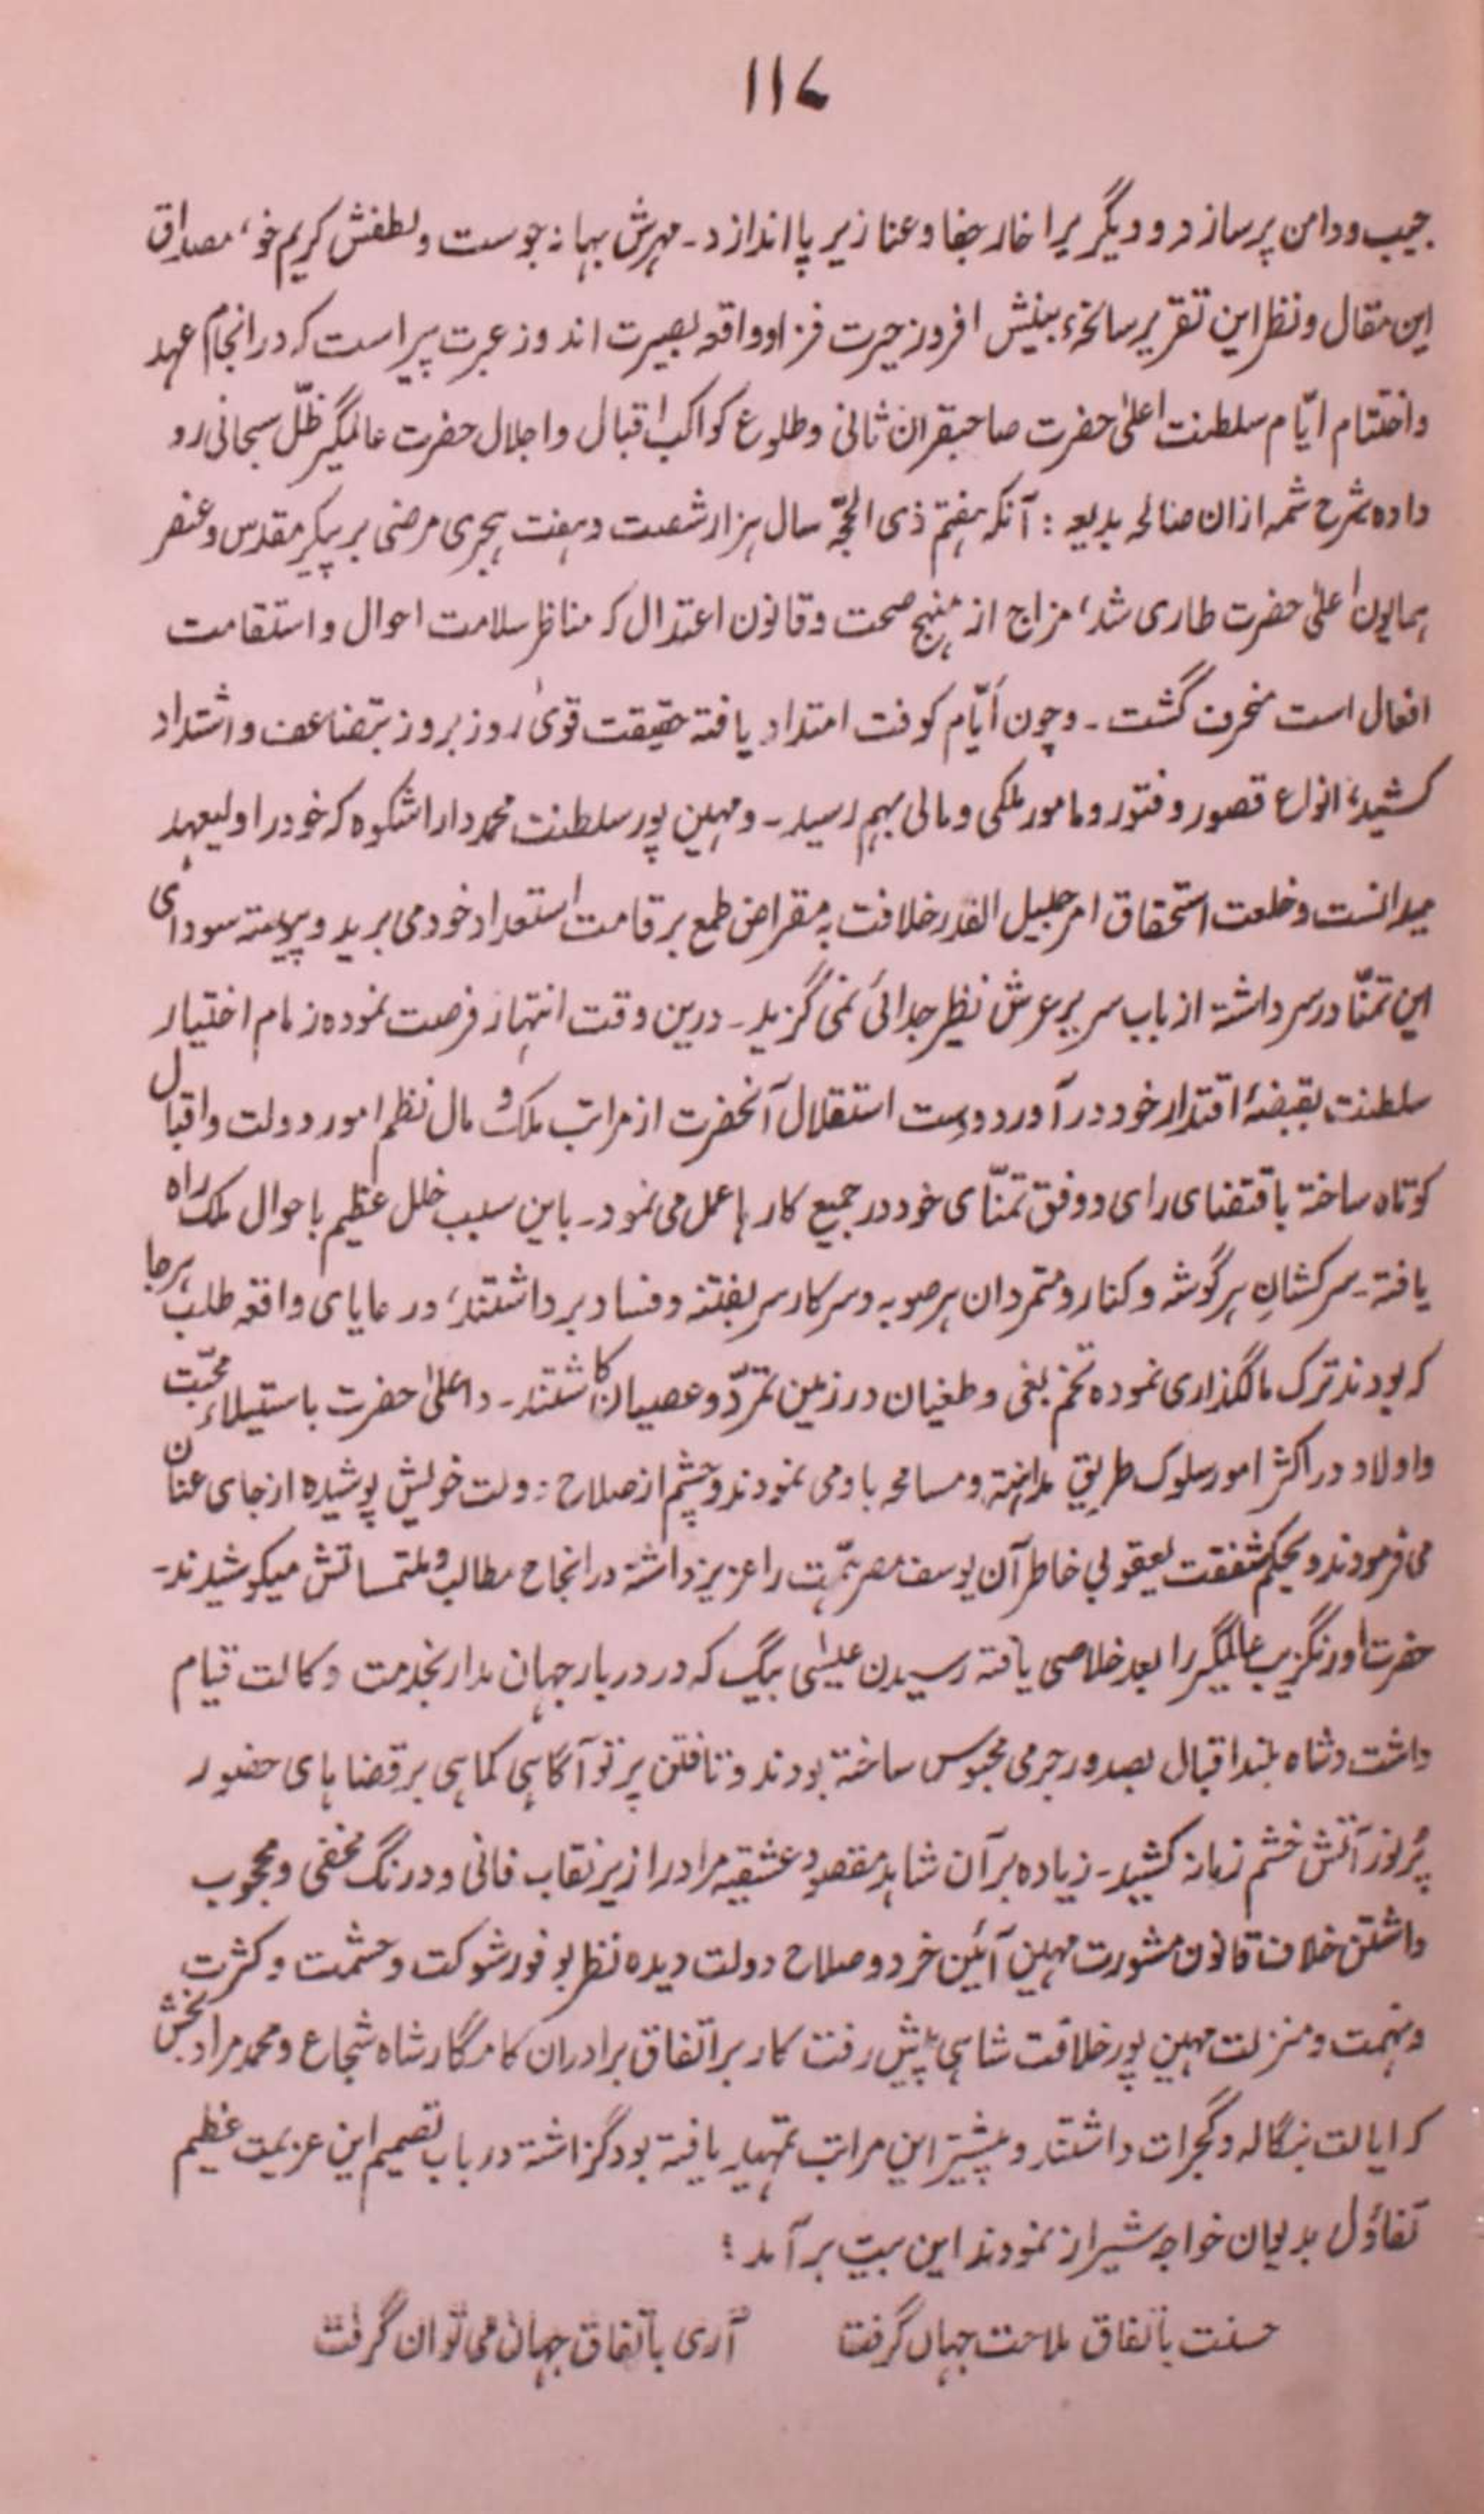 ۱۱۷
جیب و دامن پر سازد و دیگر یرا خار جفا و عنا زیر پا اندازد۔ مہرش بہانہ جوست و لطفش کریم خو، مصداق
این مقال و نظر این تقریر سانحۂ بینش افروز حیرت فزا و واقعہ بصیرت اندوز عبرت پیراست کہ در انجام عہد
و اختتام ایّام سلطنت اعلیٰ حضرت صاحبقران ثانی و طلوع کواکب اقبال و اجلال حضرت عالمگیر ظلّ سبحانی رو
داده بشرح شمہ ازان بدیعہ : آنکہ ہفتم ذی الحجّہ سال ہزار شصت و ہفت ہجری مرضی بر پیکر مقدس و عنصر
ہمایون اعلیٰ حضرت طاری شد، مزاج از منہج صحت و قانون اعتدال کہ مناظ سلامت احوال و استقامت
افعال است منحرف گشت۔ و چون اَیّام کوفت امتداد یافتہ حقیقت قویٰ روز بروز بتضاعف و اشتداد
کشید، انواع قصور و فتور و مامور ملکی و مالی بہم رسید۔ و مہین پور سلطنت محمد داراشکوہ کہ خود را ولیعہد
میدانست و خلعت استحقاق امر جلیل القدر خلافت بہ مقراض طمع بر قامت استعداد خود می برید و پیوستہ سودای
این تمنّا در سر داشتہ از باب سریر عرش نظیر جدائی نمی گزید۔ درین وقت انتہاز فرصت نموده زمام اختیار
سلطنت بقبضۂ اقتدار خود در آورد و دست استقلال آنحضرت از مراتب ملک و مال نظم امور دولت و اقبال
کوتاہ ساختہ باقتضای رای و وفق تمنّای خود در جمیع کارہا عمل می نمود۔ باین سبب خلل عظیم باحوال ملک راہ
یافتہ۔ سرکشانِ ہر گوشہ و کنار و متمردان ہر صوبہ و سرکار سر بفتنہ و فساد برداشتند، و رعایای واقعہ طلب ہر جا
کہ بودند ترک مالگذاری نموده تخم بغی و طغیان در زمین تمرّد و عصیان کاشتند۔ و اعلیٰ حضرت باستیلاء محبّت
و اولاد در اکثر امور سلوک طریقِ مداہنہ و مسامحہ با و می نمودند و چشم از صلاح دولت خویش پوشیده از جای عنان
می فرمودند و بحکم شفقت یعقوبی خاطر آن یوسف مصر ہمّت را عزیز داشتہ در انجاح مطالب و ملتمساتش میکوشیدند۔
حضرت اورنگزیب عالمگیر را بعد خلاصی یافتہ رسیدن عیسٰی بیگ کہ در دربار جہان مدار بخدمت وکالت قیام
داشت و شاہ بلند اقبال بصدور جرمی محبوس ساختہ بودند و تافتن پرتو آگاہی کماہی بر قضایای حضور
پُر نور آتش خشم زبانہ کشید۔ زیاده بر آن شاہد مقصود عشقیہ مراد را زیر نقاب فانی و درنگ مخفی و محجوب
داشتن خلاف قانون مشورت مہین آئین خرد و صلاح دولت دیده نظر بو فور شوکت و حشمت و کثرت
و نہمت و منزلت مہین پور خلافت شاہی پیش رفت کار بر اتّفاق برادران کامگار شاہ شجاع و محمد مراد بخش
کہ ایالت بنگالہ و گجرات داشتند و پیشتر این مراتب تمہید یافتہ بود گزاشتہ در باب تصمیم این عزیمت عظیم
تفاؤل بدیوان خواجہ شیراز نمودند این بیت برآمد :
حسنت باتفاق ملاحت جہاں گرفت آری باتفاق جہان می توان گرفت